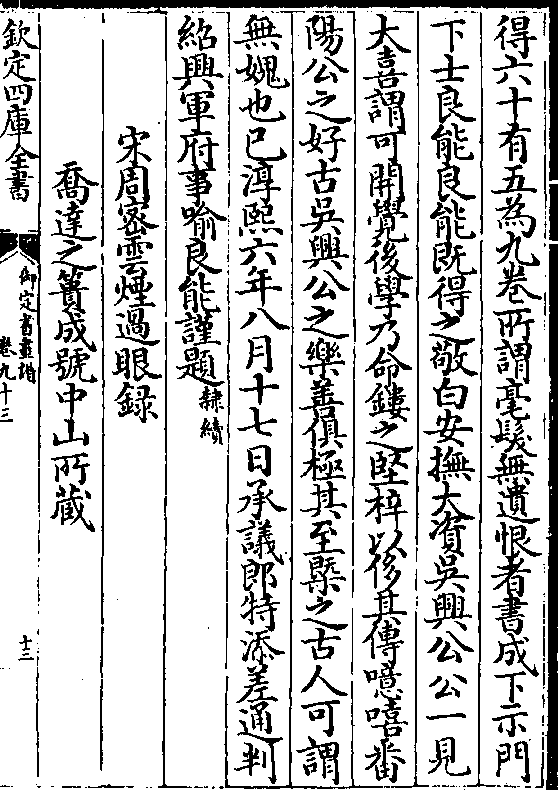 得六十有五為九卷所謂毫髮無遺恨者書成下示門
下士良能良能既得之敬白安撫大資吳興公公一見
大喜謂可開覺後學乃命鏤之堅梓以侈其傳噫嘻番
陽公之好古吳興公之樂善俱極其至槩之古人可謂
無媿也已淳熙六年八月十七日承議郎特添差通判
紹興軍府事喻良能謹題隸續
宋周密雲煙過眼錄
喬達之簣成號中山所藏
欽定四庫全書
御定書畫譜
卷九十三
十三